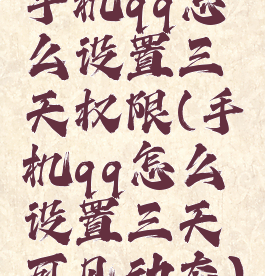 手机qq怎
么设置三
天权限(手
机qq怎么
设置三天
可见动态)